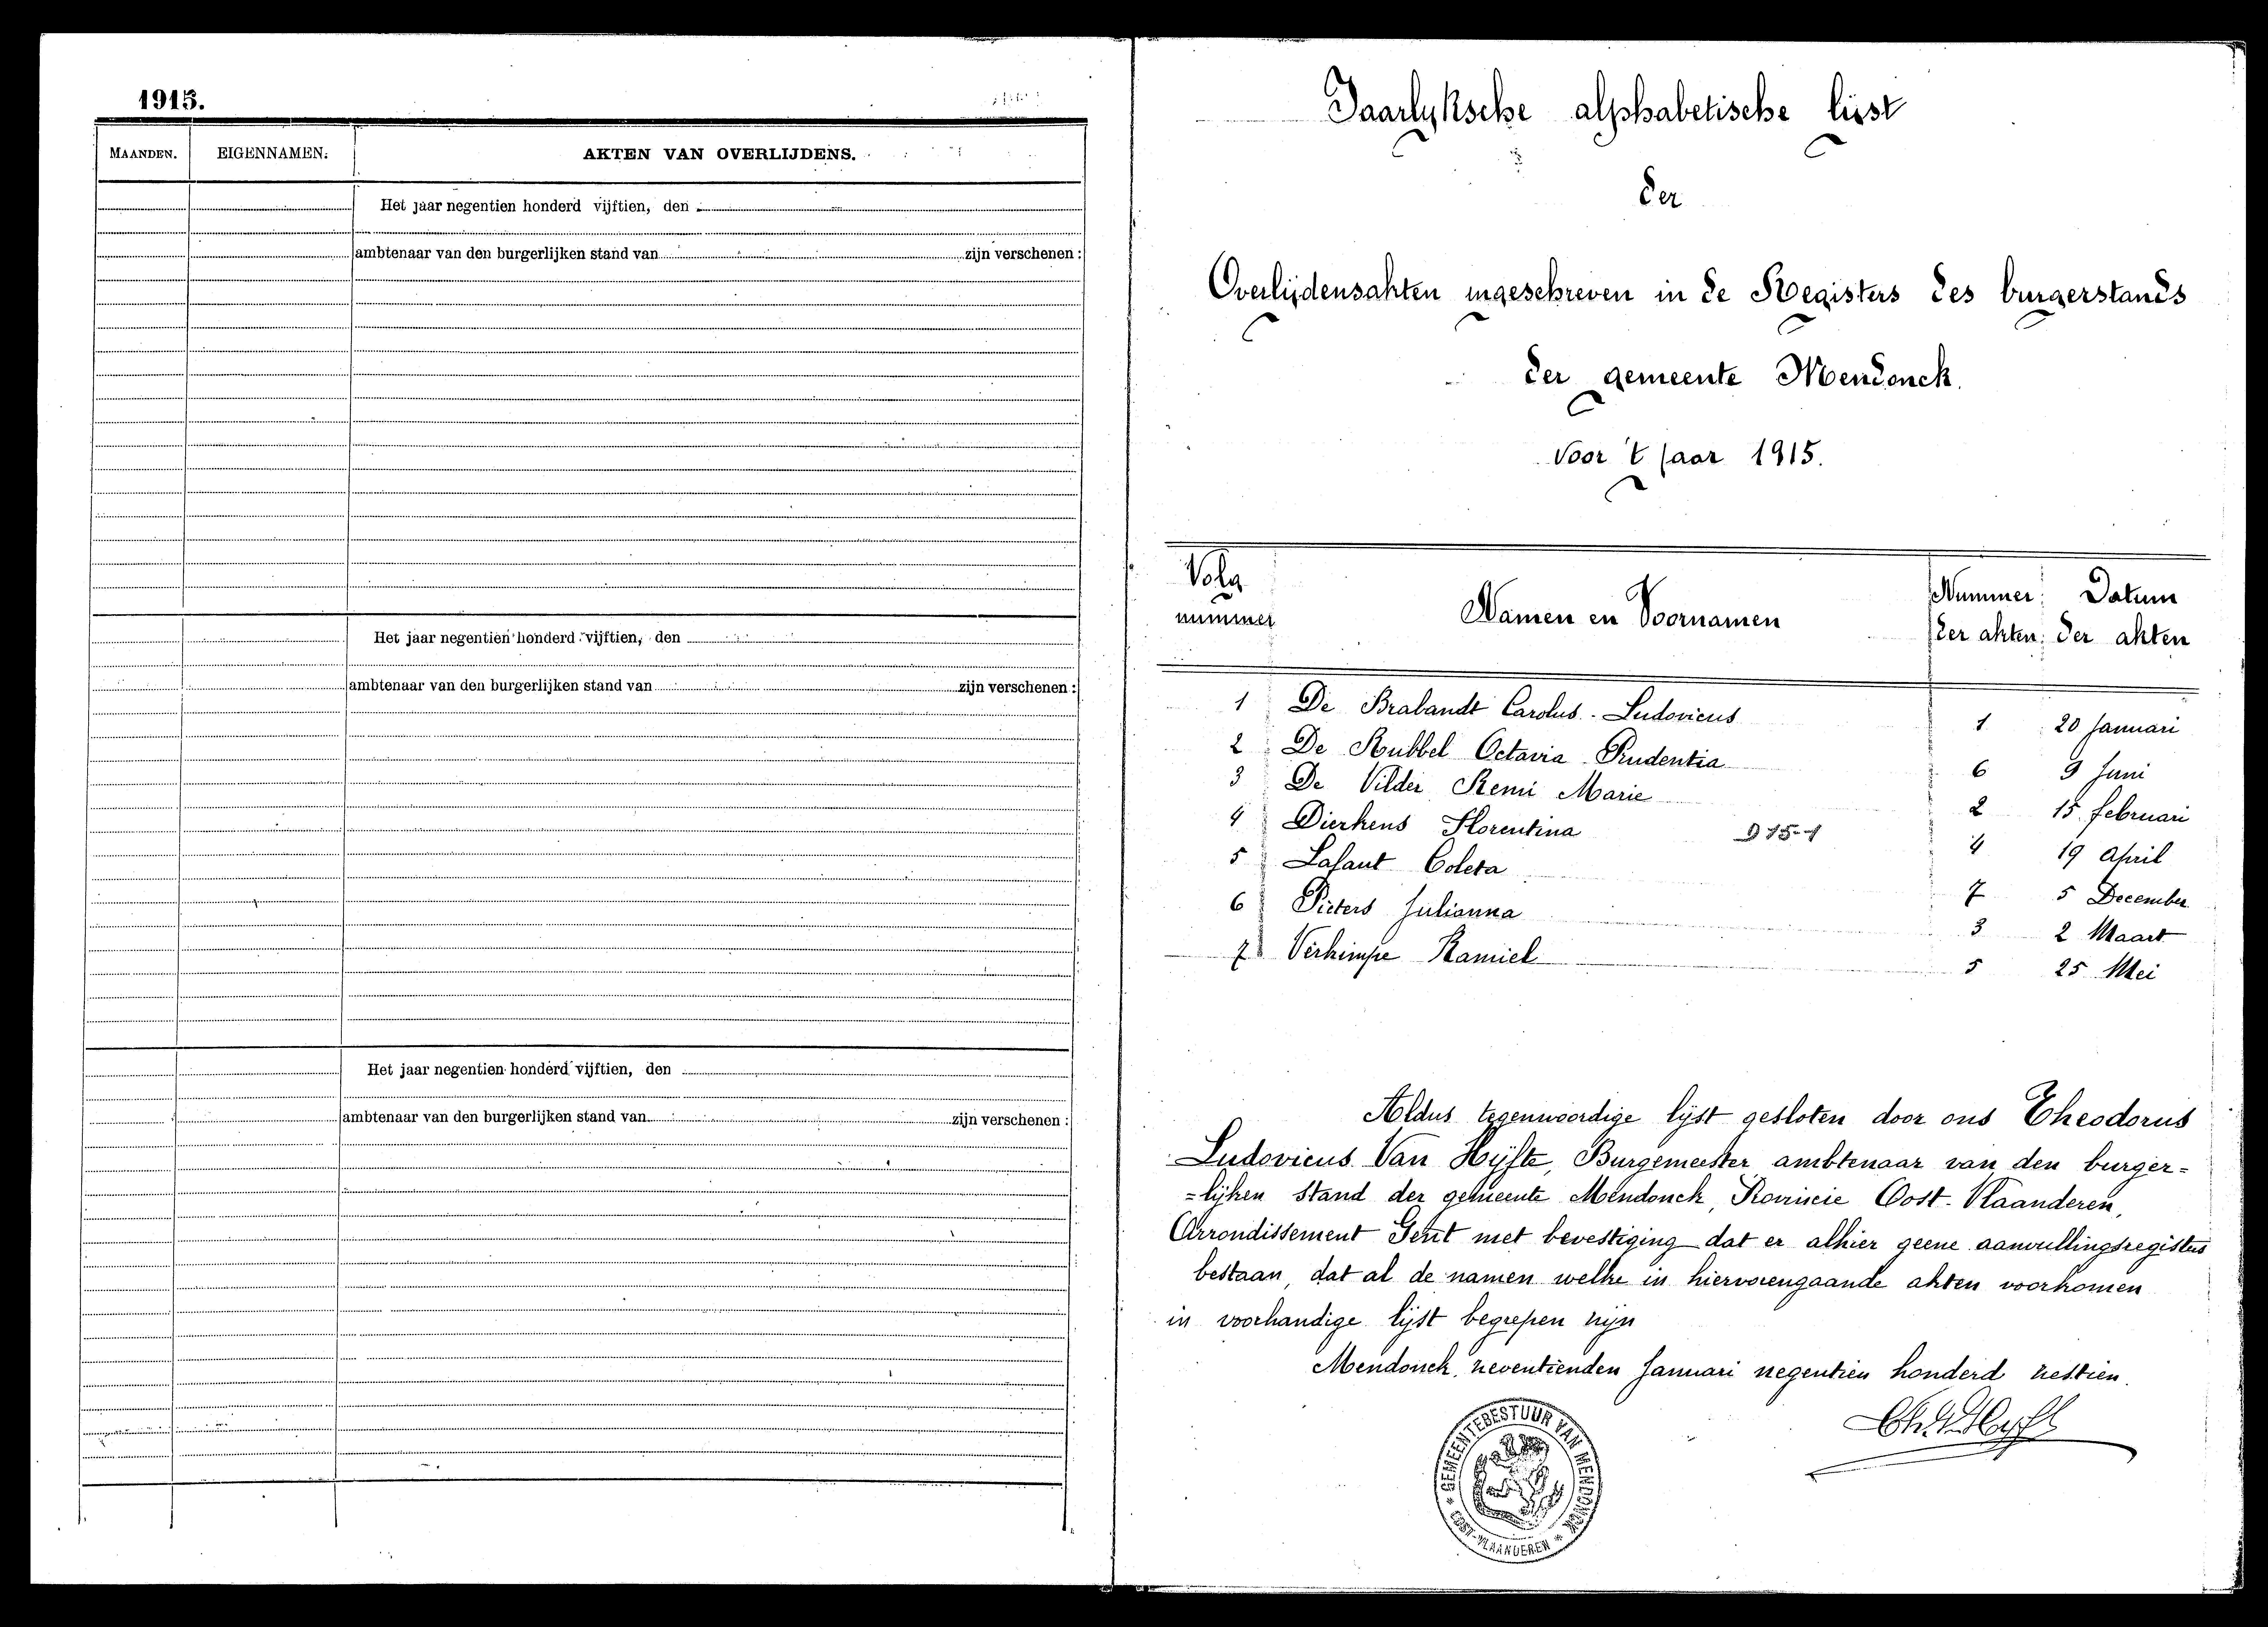 1915.
MAANDEN. EIGENNAMEN. AKTEN VAN OVERLIJDENS.
Het jaar negentien honderd vijftien, den
ambtenaar van den burgerlijken stand van zijn verschenen :
Het jaar negentien honderd vijftien, den
ambtenaar van den burgerlijken stand van zijn verschenen :
Het jaar negentien honderd vijftien, den
ambtenaar van den burgerlijken stand van zijn verschenen :
Jaarlyksche alphabetische lijst
der
Overlijdensakten ingeschreven in de Registers des burgerstands
der gemeente Mendonck.
voor 't jaar 1915.
Volg nummer Namen en Voornamen Nummer der akten Datum der akten
1 De Brabandt Carolus-Ludovicus 1 20 Januari
2 De Rubbel Octavia Prudentia 6 9 Juni
3 De Vilder Remi Marie 2 15 februari
4 Dierkens Florentina 915-1 4 19 April
5 Lafaut Coleta 7 5 December
6 Pieters Julianna 3 2 Maart
7 Verkimpe Kamiel 5 25 Mei
Aldus tegenwoordige lijst gesloten door ons Theodorus
Ludovicus Van Hijfte, Burgemeester ambtenaar van den burger=
=lijken stand der gemeente Mendonck, Provincie Oost-Vlaanderen,
Arrondissement Gent met bevestiging dat er alhier geene aanvullingsregisters
bestaan, dat al de namen welke in hiervorengaande akten voorkomen
in voorhandige lijst begrepen zijn
Mendonck, zeventienden Januari negentien honderd zestien.
GEMEENTEBESTUUR VAN MENDONCK
* OOST-VLAANDEREN *